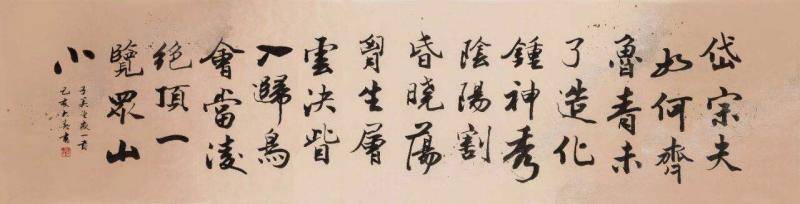 岱宗夫
如何齊
魯青未
了造化
鍾神秀
陰陽割
昏曉蕩
胷生層
雲決眥
入歸鳥
會當淩
絕頂一
覽眾山
小
子美望嶽一首
己亥